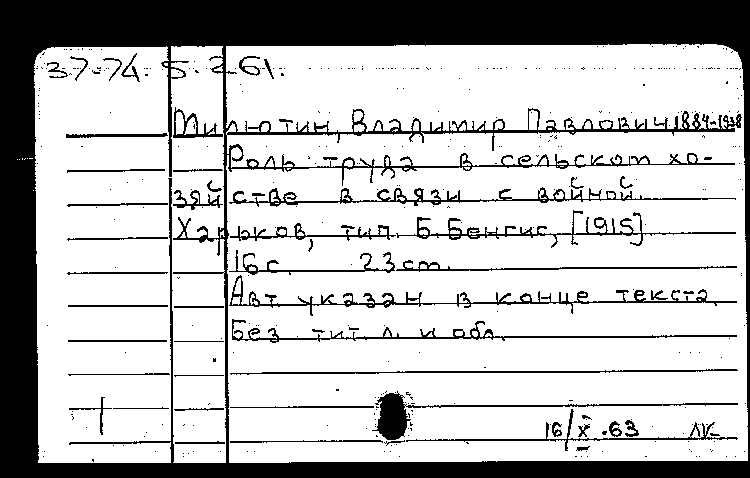 37-74.5.261.
Милютин, Владимир Павлович, 1884-1938
Роль труда в сельском хо-
зяйстве в связи с войной.
Харьков, тип. Б. Бенгис, [1915]
16 с. 23 см.
Авт. указан в конце текста.
Без тит. л. и обл.
16/X.63 ЛК